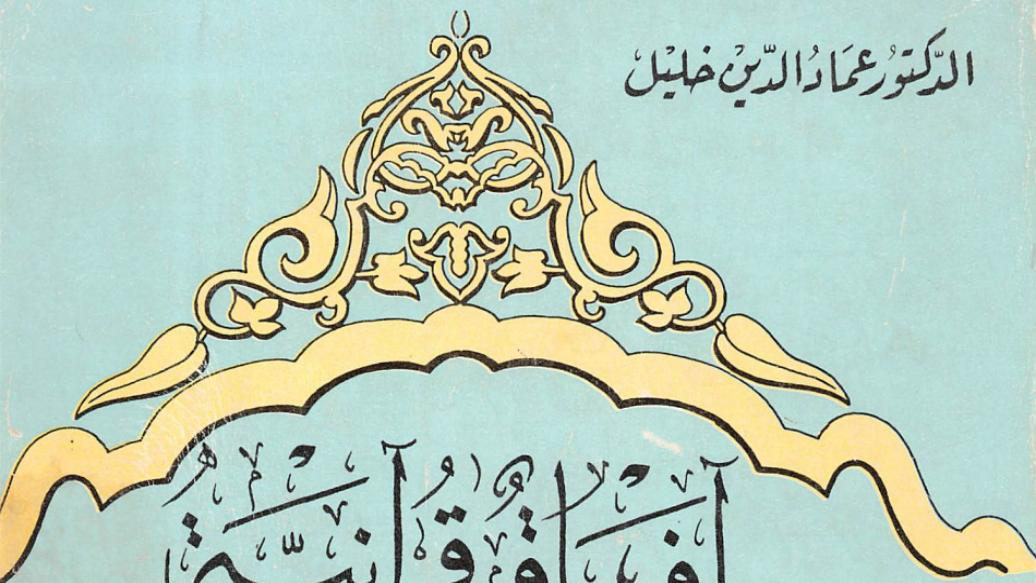 الدّكتُور عمَادُ الدّين خليْل
آفَاقٌ قُرآنيّةٌ